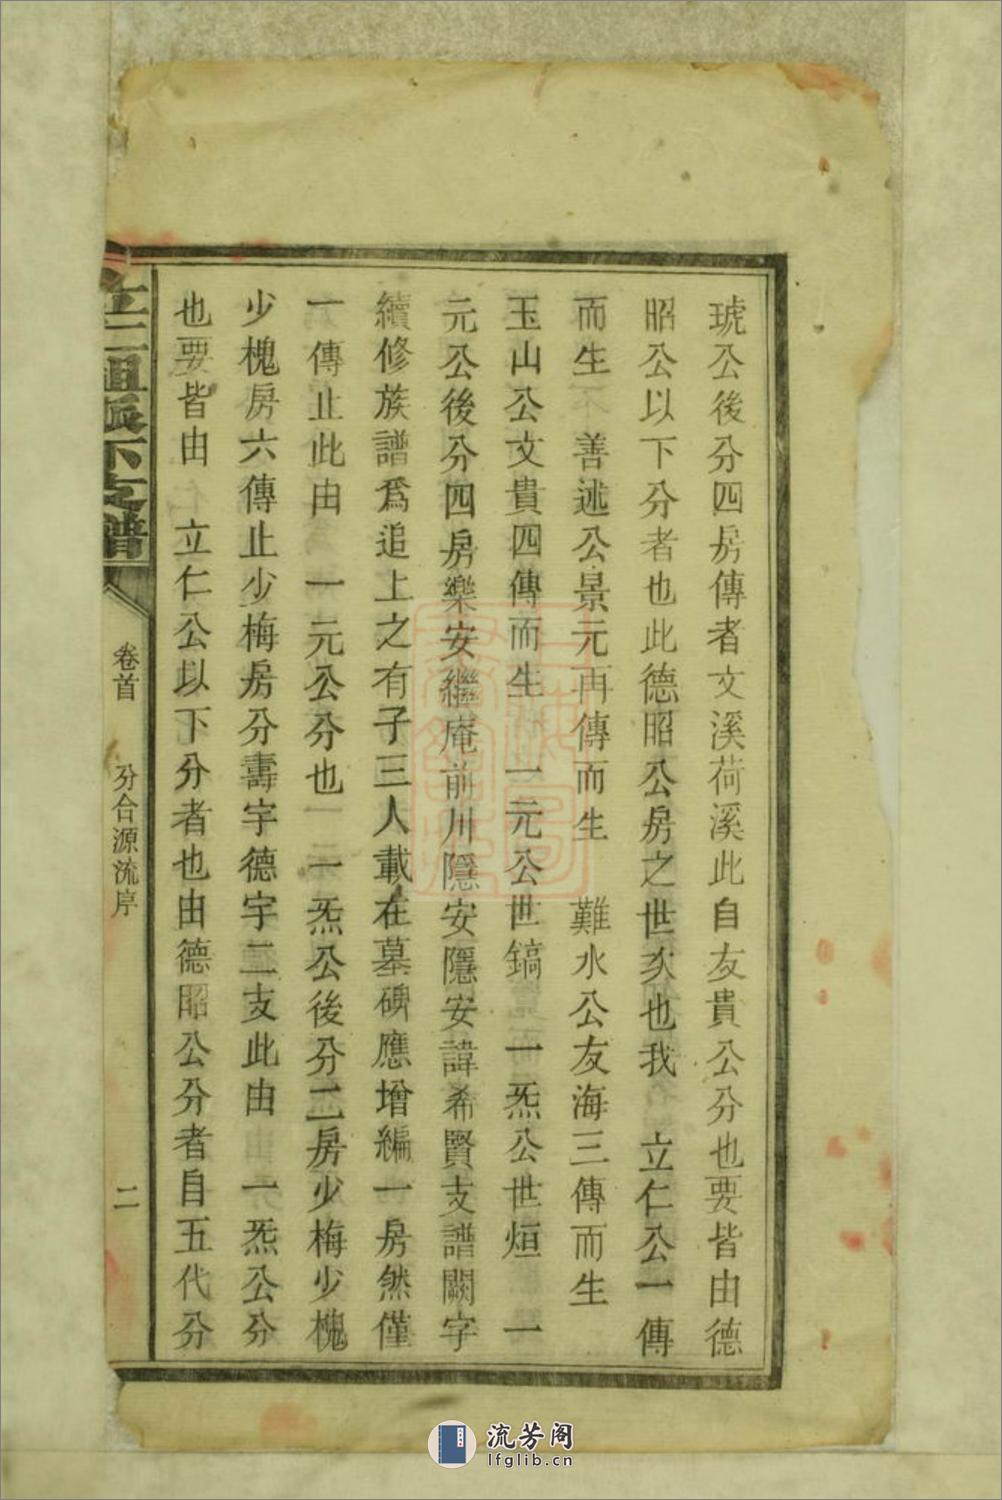 琥公後分四房傳者文溪荷溪此自友貴公分也要皆由德
昭公以下分者也此德昭公房之世次也我 立仁公一傳
而生 善述公景元再傳而生 難水公友海三傳而生
玉山公文貴四傳而生 一元公世鎬 一炁公世烜 一
元公後分四房樂安繼庵前川隱安隱安諱希賢支譜闕字
續修族譜爲追上之有子三人載在墓碑應增編一房然僅
一傳止此由 一元公分也 一炁公後分二房少梅少槐
少槐房六傳止少梅房分壽字德字二支此由 一炁公分
也要皆由 立仁公以下分者也由德昭公分者自五代分
立仁祖派下支譜
卷首 分合源流序 二
流芳阁
lfglib.cn